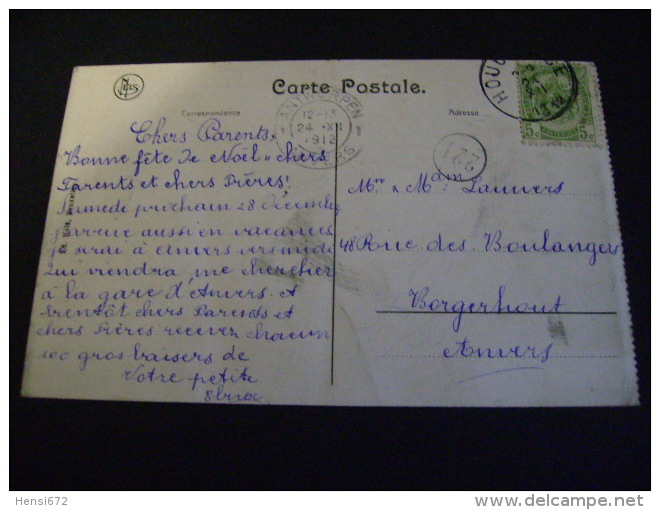 Carte Postale.
Correspondance
Adresse
ANTWERPEN
12-13
1 24 XII 1
1912
ANVERS
HOU
221
5c 5c
Chers Parents,
Bonne fête de Noël chers
Parents et chers Frères!
Samedi prochain 28 Décembre
j'arrive aussi en vacances
je serai à Anvers vers midi
Qui viendra me chercher
à la gare d'Anvers. A
bientôt chers Parents et
chers Frères recevez chacun
100 gros baisers de
Votre petite
Mr & Mdam Lauwers
48 Rue des Boulangers
Borgerhout
Anvers
Hensi672
delcampe.net